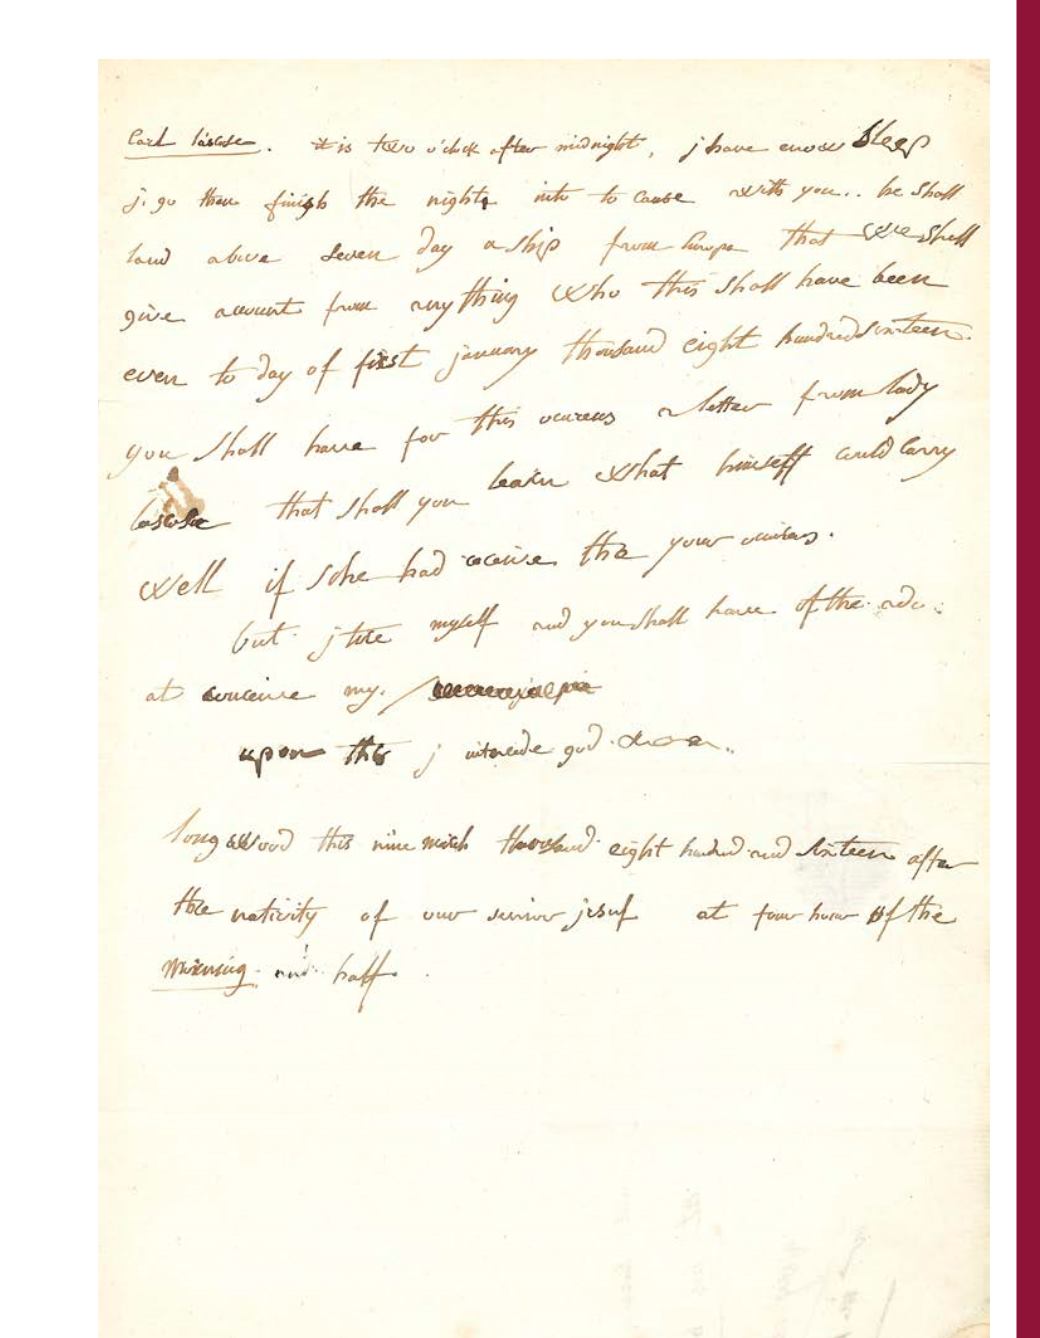 it is two o'clock after midnight, j have enow sleep
j. go then finish the night into to cause with you.. he shall
land above seven day a ship from Europe that we shall
give account from any thing who this shall have been
even to day of first january thousand eight hundred sixteen.
you shall have for this a letter from lady
that shall you learn what himself could carry
well if sche had receive the your
but j tire myself and you shall have of the
at conceive my.
upon this j intercede god
longwood this nine thousand eight hundred and sixteen after
the nativity of our jesus at four hour of the
morning and half.